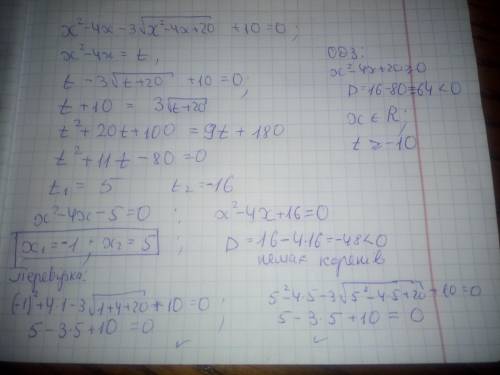 x²-4x-3√(x²-4x+20) +10=0;
x²-4x = t,
t-3√(t+20) +10=0;
t+10 = 3√(t+20)
t²+20t+100 = 9t+180
t²+11t-80=0
t₁= 5 t₂=-16
x²-4x-5=0 ; x²-4x+16=0
x₁=-1 ; x₂= 5 ; D=16-4·16=-48<0
немає коренів
ОДЗ:
x²-4x+20≥0
D=16-80=-64<0
x∈R;
t≥-10
Перевірка:
(-1)²+4·1-3√(1+4+20)+10=0 ; 5²-4·5-3√(5²-4·5+20)+10=0
5-3·5+10=0 5-3·5+10=0
✓ ✓